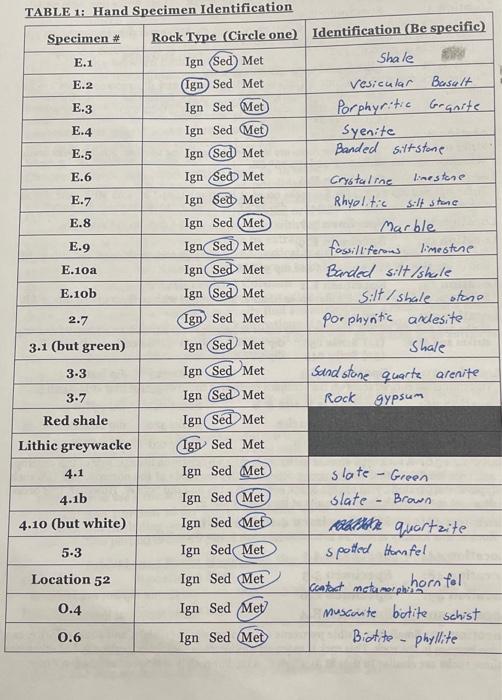 TABLE 1: Hand Specimen Identification
Specimen # Rock Type (Circle one) Identification (Be specific)
E.1 Ign Sed Met Shale
E.2 Ign Sed Met Vesicular Basalt
E.3 Ign Sed Met Porphyritic Granite
E.4 Ign Sed Met Syenite
E.5 Ign Sed Met Banded siltstone
E.6 Ign Sed Met Crystaline limestone
E.7 Ign Sed Met Rhyolitic silt stone
E.8 Ign Sed Met Marble
E.9 Ign Sed Met fossilliferous limestone
E.10a Ign Sed Met Banded silt/shale
E.10b Ign Sed Met Silt/shale stone
2.7 Ign Sed Met Porphyritic andesite
3.1 (but green) Ign Sed Met Shale
3.3 Ign Sed Met Sandstone quartz arenite
3.7 Ign Sed Met Rock gypsum
Red shale Ign Sed Met
Lithic greywacke Ign Sed Met
4.1 Ign Sed Met slate - Green
4.1b Ign Sed Met slate - Brown
4.10 (but white) Ign Sed Met quartzite
5.3 Ign Sed Met spotted Hornfel
Location 52 Ign Sed Met contact metamorphism hornfel
0.4 Ign Sed Met muscovite botite schist
0.6 Ign Sed Met Biotite - phyllite